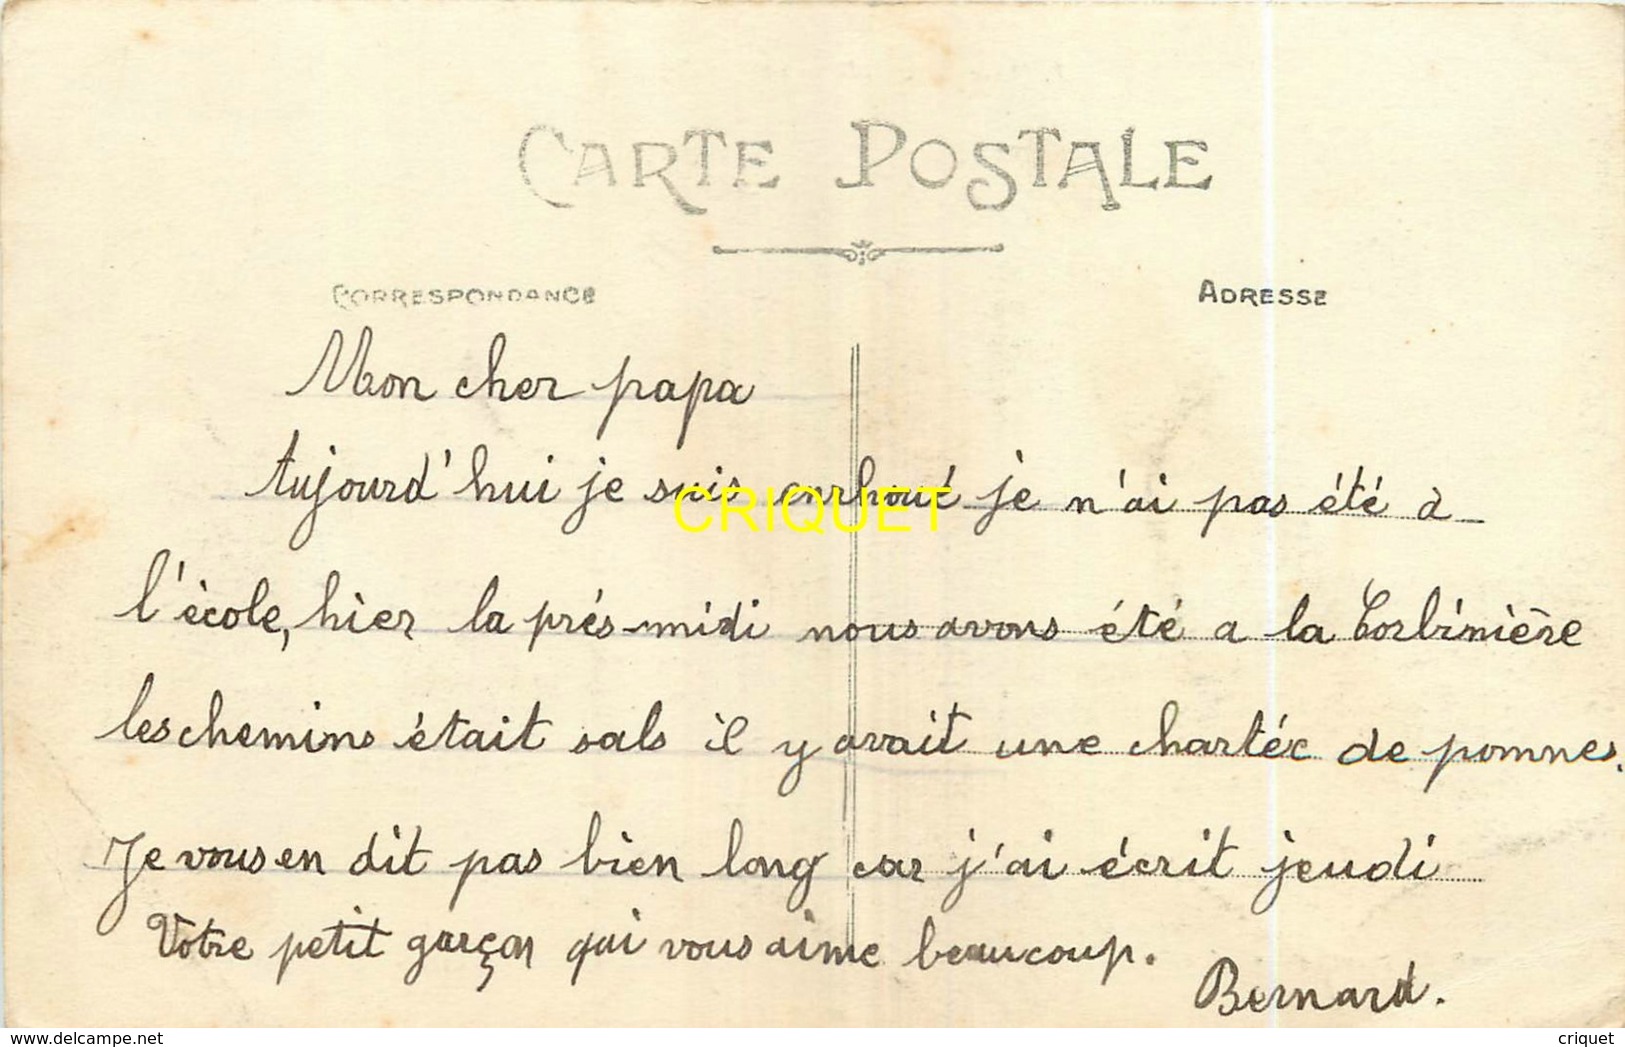 CARTE POSTALE
CORRESPONDANCE
ADRESSE
Mon cher papa
Aujourd'hui je suis enrhoué je n'ai pas été à
l'école, hier la prés-midi nous avons été a la Corbinière
les chemins était sals il y avait une chartée de pomnes.
Je vous en dit pas bien long car j'ai écrit jeudi
Votre petit garçon qui vous aime beaucoup.
Bernard.
CRIQUET
www.delcampe.net
criquet